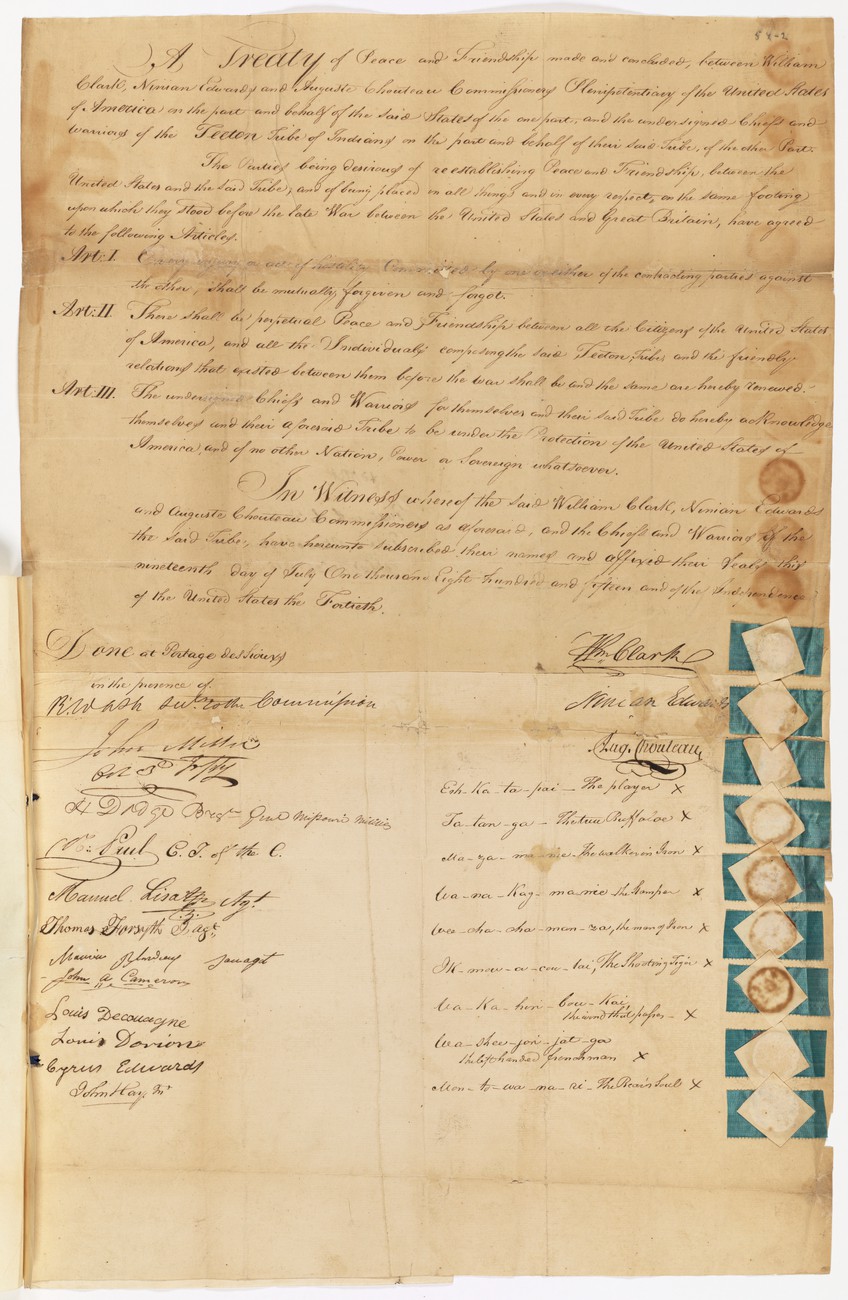 58-2
A Treaty of Peace and Friendship made and concluded, between William
Clark, Ninian Edwards and Auguste Chouteau Commissioners Plenipotentiary of the United States
of America on the part and behalf of the said States of the one part; and the undersigned Chiefs and
warriors of the Teeton Tribe of Indians on the part and behalf of their said Tribe, of the other Part.
The Parties being desirous of re establishing Peace and Friendship, between the
United States and the said Tribe, and of being placed in all things and in every respect, on the same footing
upon which they stood before the late War between the United States and Great Britain, have agreed
to the following Articles.
Art: I. Every injury or act of hostility Committed by one or either of the contracting parties against
the other, shall be mutually forgiven and forgot.
Art: II There shall be perpetual Peace and Friendship between all the Citizens of the United States
of America, and all the Individuals composing the said Teeton Tribe and the friendly
relations that existed between them before the war shall be and the same are hereby renewed.
Art: III. The undersigned Chiefs and Warriors for themselves and their said Tribe do hereby acknowledge
themselves and their aforesaid Tribe to be under the Protection of the United States of
America, and of no other Nation, Power or Sovereign whatsoever.
In Witness whereof the said William Clark, Ninian Edwards
and Auguste Chouteau Commissioners as aforesaid, and the Chiefs and Warriors of the
the said Tribe, have hereunto subscribed their names and affixed their Seals this
nineteenth day of July One thousand Eight hundred and fifteen and of the Independence
of the United States the Fortieth.
Done at Portage des Sioux
in the presence of
R. Wash Secy to the Commission
John Miller
Col 3d Infy
H Dodge Brigr Genl Missouri Militia
Paul C. T. of the C.
Manuel Lisa Agt
Thomas Forsyth I. agt
Maurice Blondeau
John A Cameron
Louis Decouagne
Louis Dorion
Cyrus Edwards
John Hay
Wm Clark
Ninian Edwards
Aug. Chouteau
Esh-Ka-ta-pai - The player X
Ta-tan-ga - The true Buffaloe X
Ma-za-ma-nie - The walker in Iron X
Wa-na-Kag-ma-nie the Stamper X
Wee-cha-cha-man-za, the man of Iron X
Ik-mou-a-cou-lai, The Shooting Tiger X
Wa-Ka-hon-
the wind that passes - X
Wa-shee-jon-jat-ga
the left handed frenchman X
Mon-to-wa-na-ri - The Bear's Soul X